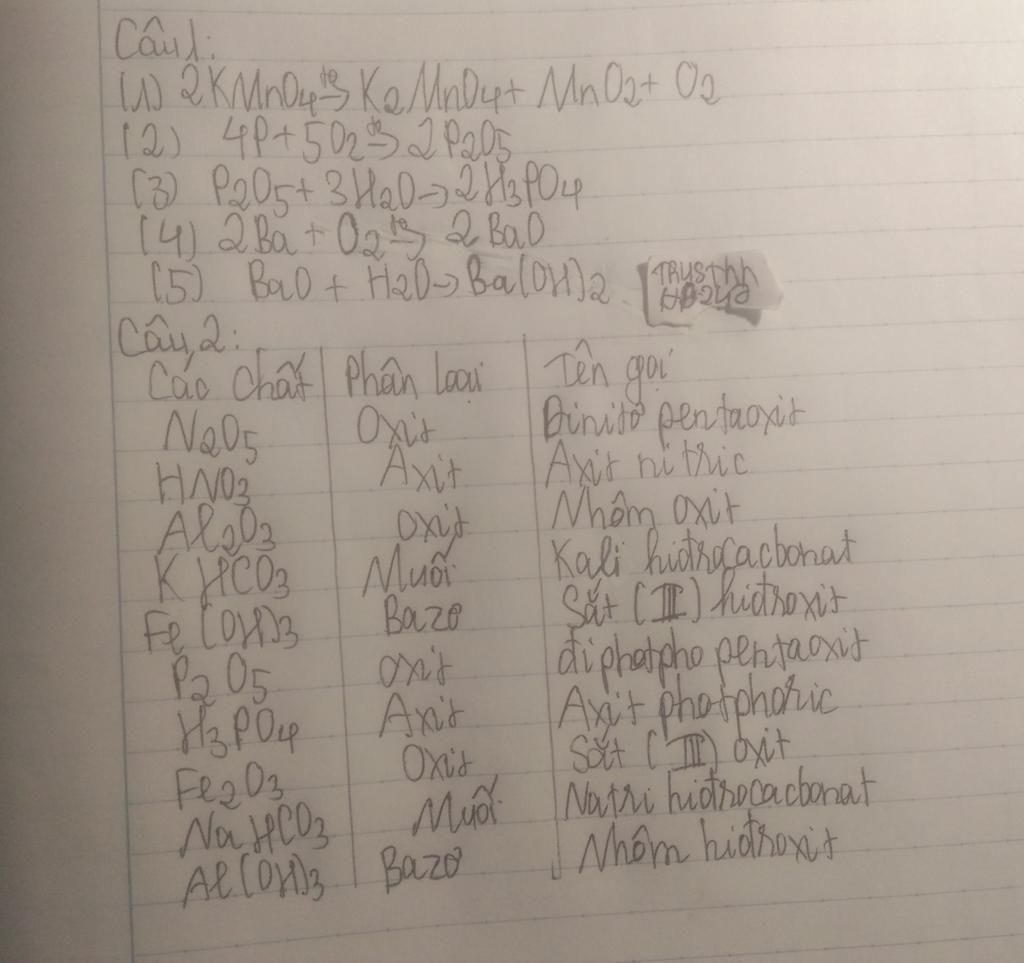 Câu 1:
(1) 2KMnO4 t° → K2MnO4 + MnO2 + O2
(2) 4P + 5O2 t° → 2P2O5
(3) P2O5 + 3H2O → 2H3PO4
(4) 2Ba + O2 t° → 2BaO
(5) BaO + H2O → Ba(OH)2
Câu 2:
Các chất | Phân loại | Tên gọi
N2O5 | Oxit | Đinitơ pentaoxit
HNO3 | Axit | Axit nitric
Al2O3 | oxit | Nhôm oxit
KHCO3 | Muối | Kali hiđrocacbonat
Fe(OH)3 | Bazơ | Sắt (III) hiđroxit
P2O5 | oxit | điphotpho pentaoxit
H3PO4 | Axit | Axit photphoric
Fe2O3 | Oxit | Sắt (III) oxit
NaHCO3 | Muối | Natri hiđrocacbonat
Al(OH)3 | Bazơ | Nhôm hiđroxit